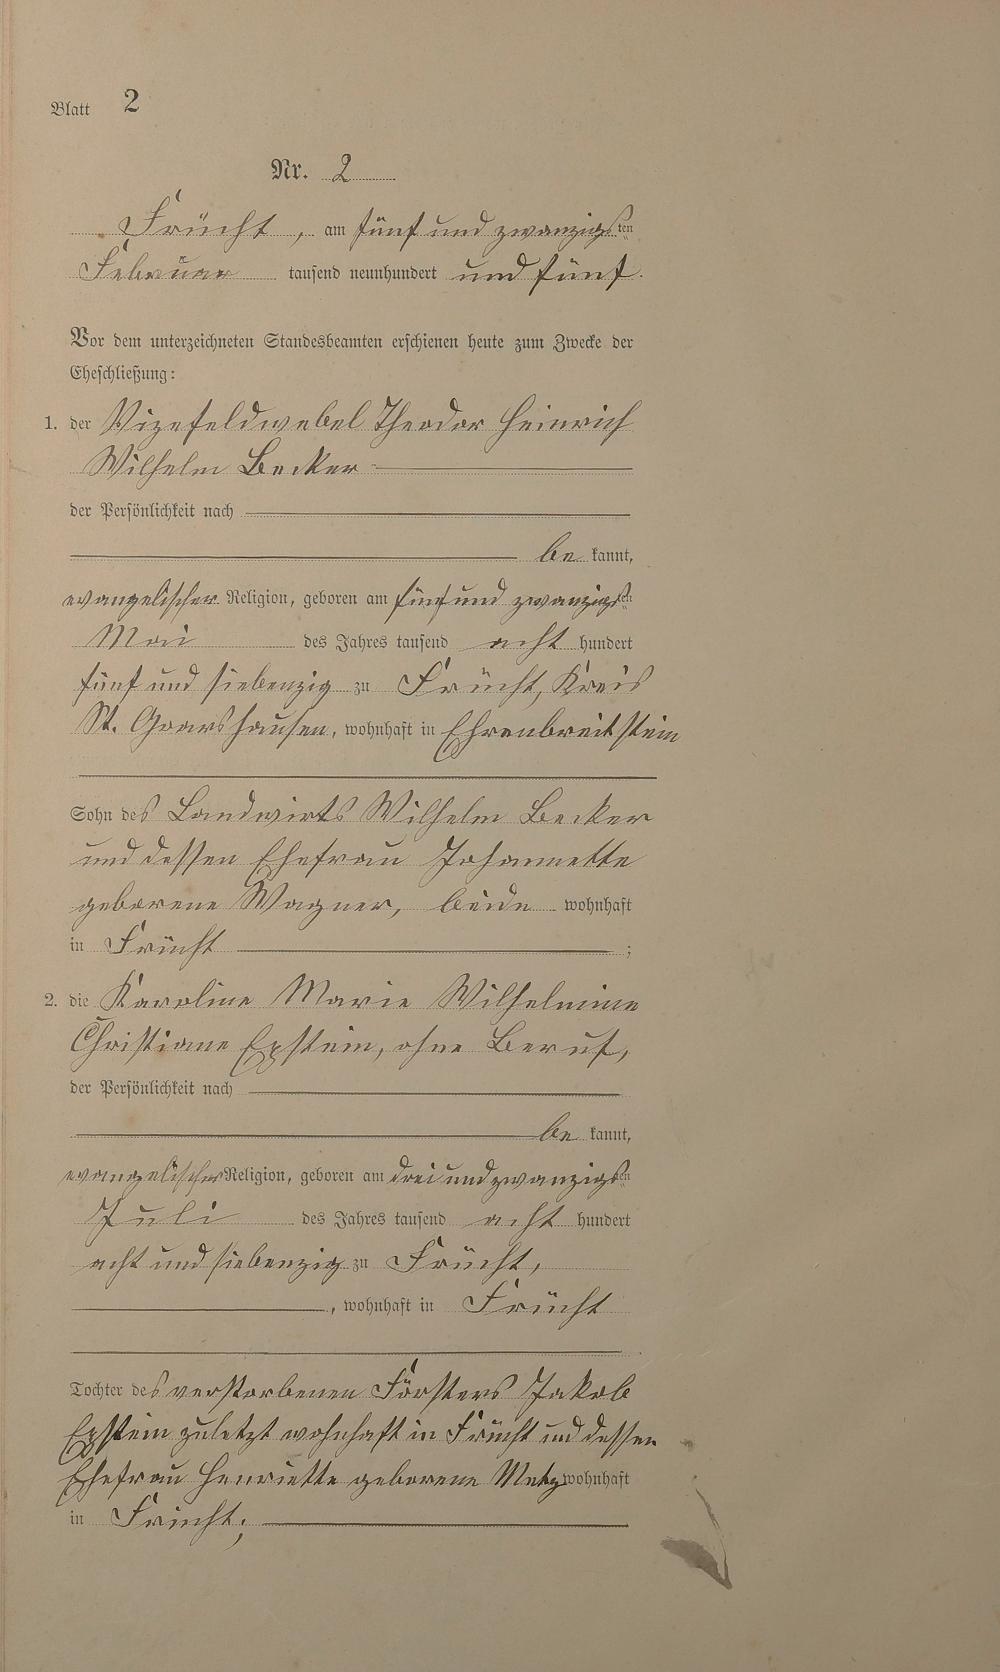 Blatt 2
Nr. 2
Frücht, am fünf und zwanzigsten
Februar tausend neunhundert und fünf.
Vor dem unterzeichneten Standesbeamten erschienen heute zum Zwecke der
Eheschließung:
1. der Vizefeldwebel Theodor Heinrich
Wilhelm Becker
der Persönlichkeit nach
be kannt,
evangelischer Religion, geboren am fünf und zwanzigsten
Mai des Jahres tausend acht hundert
fünf und siebenzig zu Frücht, Kreis
St. Goarshausen, wohnhaft in Ehrenbreitstein
Sohn des Landwirts Wilhelm Becker
und dessen Ehefrau Johannette
geborene Wagner, beide wohnhaft
in Frücht ;
2. die Karoline Marie Wilhelmine
Christiane Epstein, ohne Beruf,
der Persönlichkeit nach
be kannt,
evangelischer Religion, geboren am drei und zwanzigsten
Juli des Jahres tausend acht hundert
acht und siebenzig zu Frücht,
, wohnhaft in Frücht
Tochter des verstorbenen Försters Jakob
Epstein zuletzt wohnhaft in Frücht und dessen
Ehefrau Henriette geborene Metz wohnhaft
in Frücht;